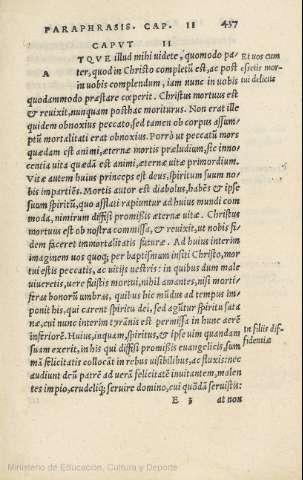 PARAPHRASIS. CAP. II 437
CAPVT II
ATQVE illud mihi uidete, quomodo pa-
ter, quod in Christo completũ est, ac post
in uobis complendum, iam nunc in uobis
quodammodo præstare cœperit. Christus mortuus est
& reuixit, nunquam posthac moriturus. Non erat ille
quidem obnoxius peccato, sed tamen ob corpus assum-
ptũ mortalitati erat obnoxius. Porrò ut peccatũ mors
quædam est animi, æternæ mortis præludium, sic inno-
centia uita quædã est animi, æternæ uitæ primordium.
Vitæ autem huius princeps est deus, spiritum suum no-
bis impartiẽs. Mortis autor est diabolus, habẽs & ipse
suum spiritũ, quo afflati rapiuntur ad huius mundi com
moda, nimirum diffisi promißis æternæ uitæ. Christus
mortuus est ob nostra commissa, & reuixit, ut nobis fi-
dem faceret immortalitatis futuræ. Ad huius interim
imaginem uos quoq; per baptismum insiti Christo, mor
tui estis peccatis, ac uitijs uestris: in quibus dum male
uiueretis, uere fuistis mortui, nihil amantes, nisi morti-
feras bonorũ umbras, quibus hic mũdus ad tempus im-
ponit his, qui carent spiritu dei, sed agũtur spiritu sata
næ, cui nunc interim tyrãnis est permissa in hunc aerẽ
inferiorẽ. Huius, inquam, spiritus, & ipse uim quandam
suam exerit, in his qui diffisi promißis euangelicis, sum
mã felicitatẽ collocãt in rebus uisibilibus, ac fluxis: nec
audiunt deũ patrẽ ad uerã felicitatẽ inuitantem, malen
tes impio, crudeliq; seruire domino, cui quõdã seruistis:
E 3 at non
Et uos cum
essetis mor-
tui delictis
In filiis dif-
fidentiæ
Ministerio de Educación, Cultura y Deporte